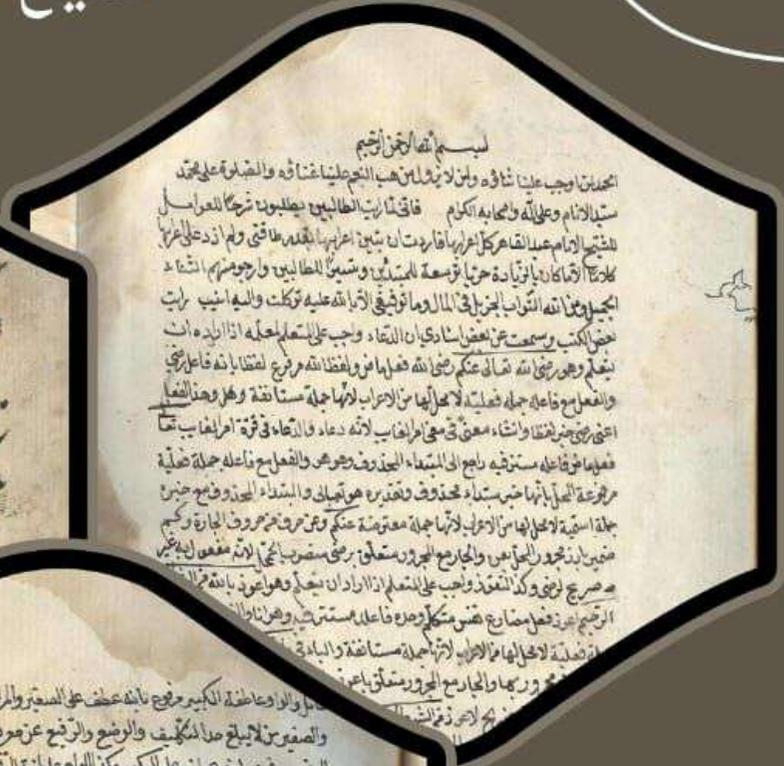 بسم الله الرحمن الرحيم
الحمد لمن اوجب علينا ثناؤه ولمن لا يزول لمن هب النعم علينا غناؤه والصلوة على محمد
سيد الانام وعلى آله واصحابه الكرام فانى لما رايت الطالبين يطلبون شرحا للعوامل
للشيخ الامام عبد القاهر كل اعرابها فاردت ان تبين اعرابها بقدر طاقتى ولم ازد على اعرابها
كلاما الا ما كان بالزيادة حريا توسعة للمبتدئين وتيسيرا للطالبين وارجو منهم الثناء
الجميل ومن الله الثواب الجزيل فى المآل وما توفيقى الا بالله عليه توكلت واليه انيب رايت
بعض الكتب وسمعت عن بعض استادى ان الدعاء واجب على المتعلم لمعلمه اذا اراد ان
يتعلم وهو رضى الله تعالى عنكم رضى الله فعل ماض ولفظا الله مرفوع لفظا بانه فاعل رضى
والفعل مع فاعله جملة فعلية لا محل لها من الاعراب لانها جملة مستانفة وهل وهذا الفعل
اعنى رضى خبر لفظا وانشاء معنى فى معنى امر الغايب لانه دعاء والدعاء فى قوة امر الغايب تعالى
فعل ماض فاعله مستتر فيه راجع الى المبتداء المحذوف وهو هو والفعل مع فاعله جملة فعلية
مرفوعة المحل بانها خبر مبتداء محذوف وتقديره هو تعالى والمبتداء المحذوف مع خبره
جملة اسمية لا محل لها من الاعراب لانها جملة معترضة عنكم وعن حرف من حروف الجارة وكم
ضمير بارز مجرور المحل بعن والجار مع المجرور متعلق برضى منصوب المحل لانه مفعول به غير
صريح لرضى وكذا التعوذ واجب على المتعلم اذا اراد ان يتعلم وهو اعوذ بالله من
الرجيم اعوذ فعل مضارع نفس متكلم وحده فاعله مستتر فيه وهو انا
جملة فعلية لا محل لها من الاعراب لانها جملة مستانفة والباء فى
مجرور بها والجار مع المجرور متعلق باعوذ
لاعوذ من
والواو عاطفة الكبير مرفوع بانه عطف على الصغير
والصغير من لا يبلغ حد التكليف والوضيع والرفيع عن